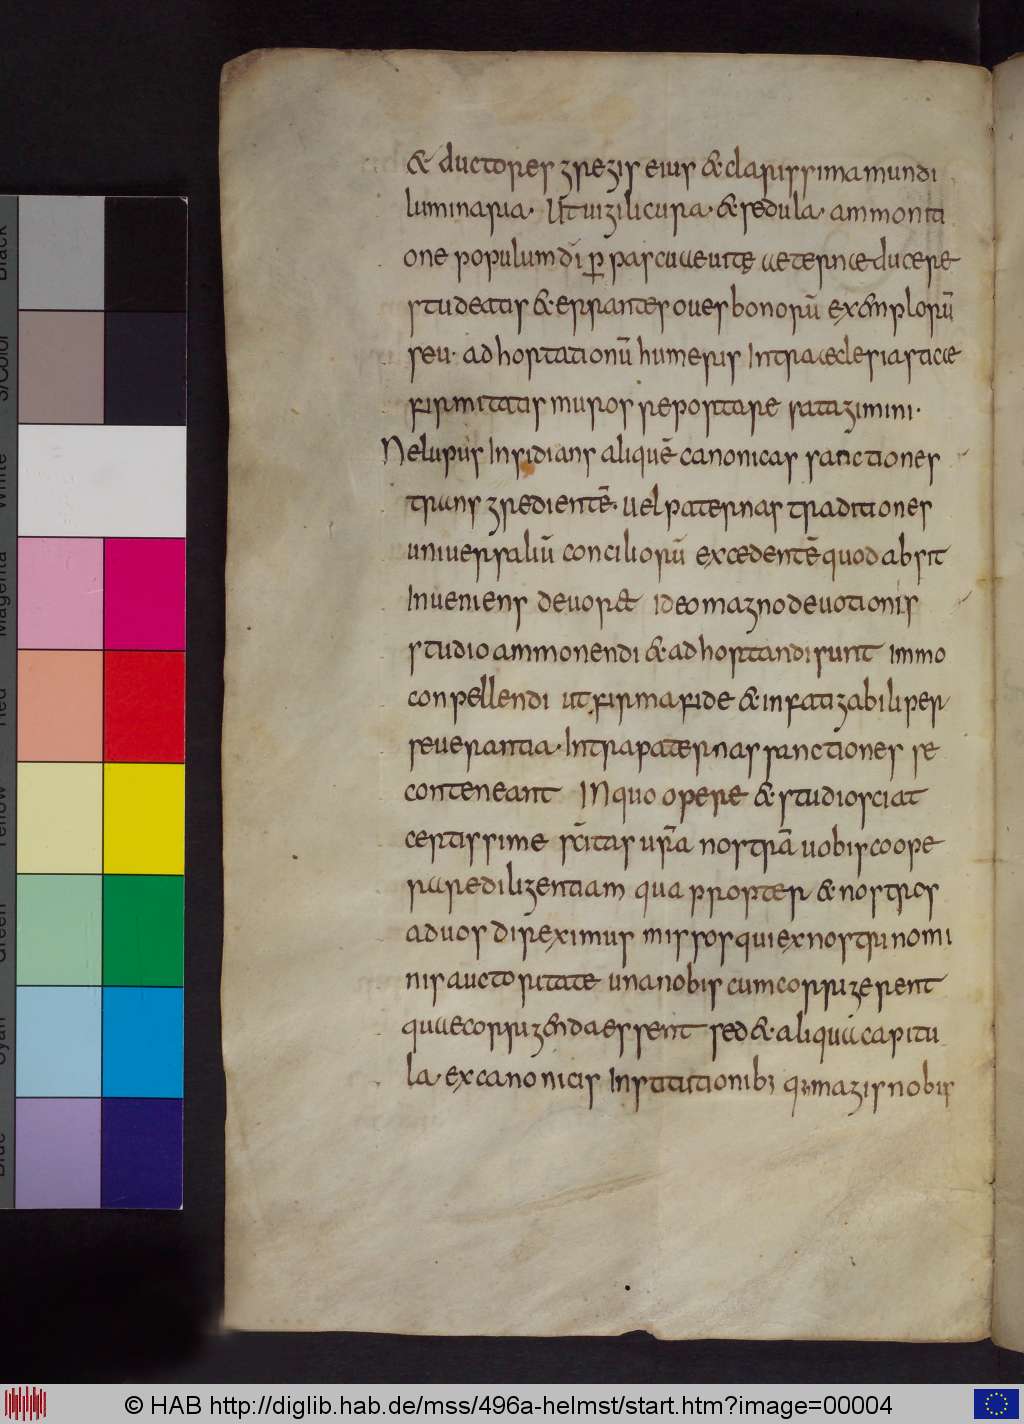 & ductores gregis eius & clarissima mundi
luminaria· Ut uigili cura· & sedula· ammoniti
one populum dī p̱ pascua uitę aeternae ducere
studeatis & errantes oues bonorū ex&mplorū
seu· adhortationū humeris Intra aeclesiasticae
firmitatis muros reportare satagimini·
Ne lupus Insidians aliquē canonicas sanctiones
transgredientē· uel paternas traditiones
uniuersaliū conciliorū excedentē quod absit
Inueniens deuor& Ideo magno deuotionis
studio ammonendi & adhortandi sunt Immo
conpellendi ut firma fide & infatigabili per
seuerantia· Intra paternas sanctiones se
conteneant In quo opere & studio sciat
certissime sc̄itas ur̄a nostrā uobis coope
rare diligentiam qua propter & nostros
ad uos direximus missos qui ex nostri nomi
nis auctoritate una nobiscum corrigerent
quae corrigenda essent sed & aliqua capitu
la· ex canonicis Institutionib; q; magis nobis
© HAB http://diglib.hab.de/mss/496a-helmst/start.htm?image=00004